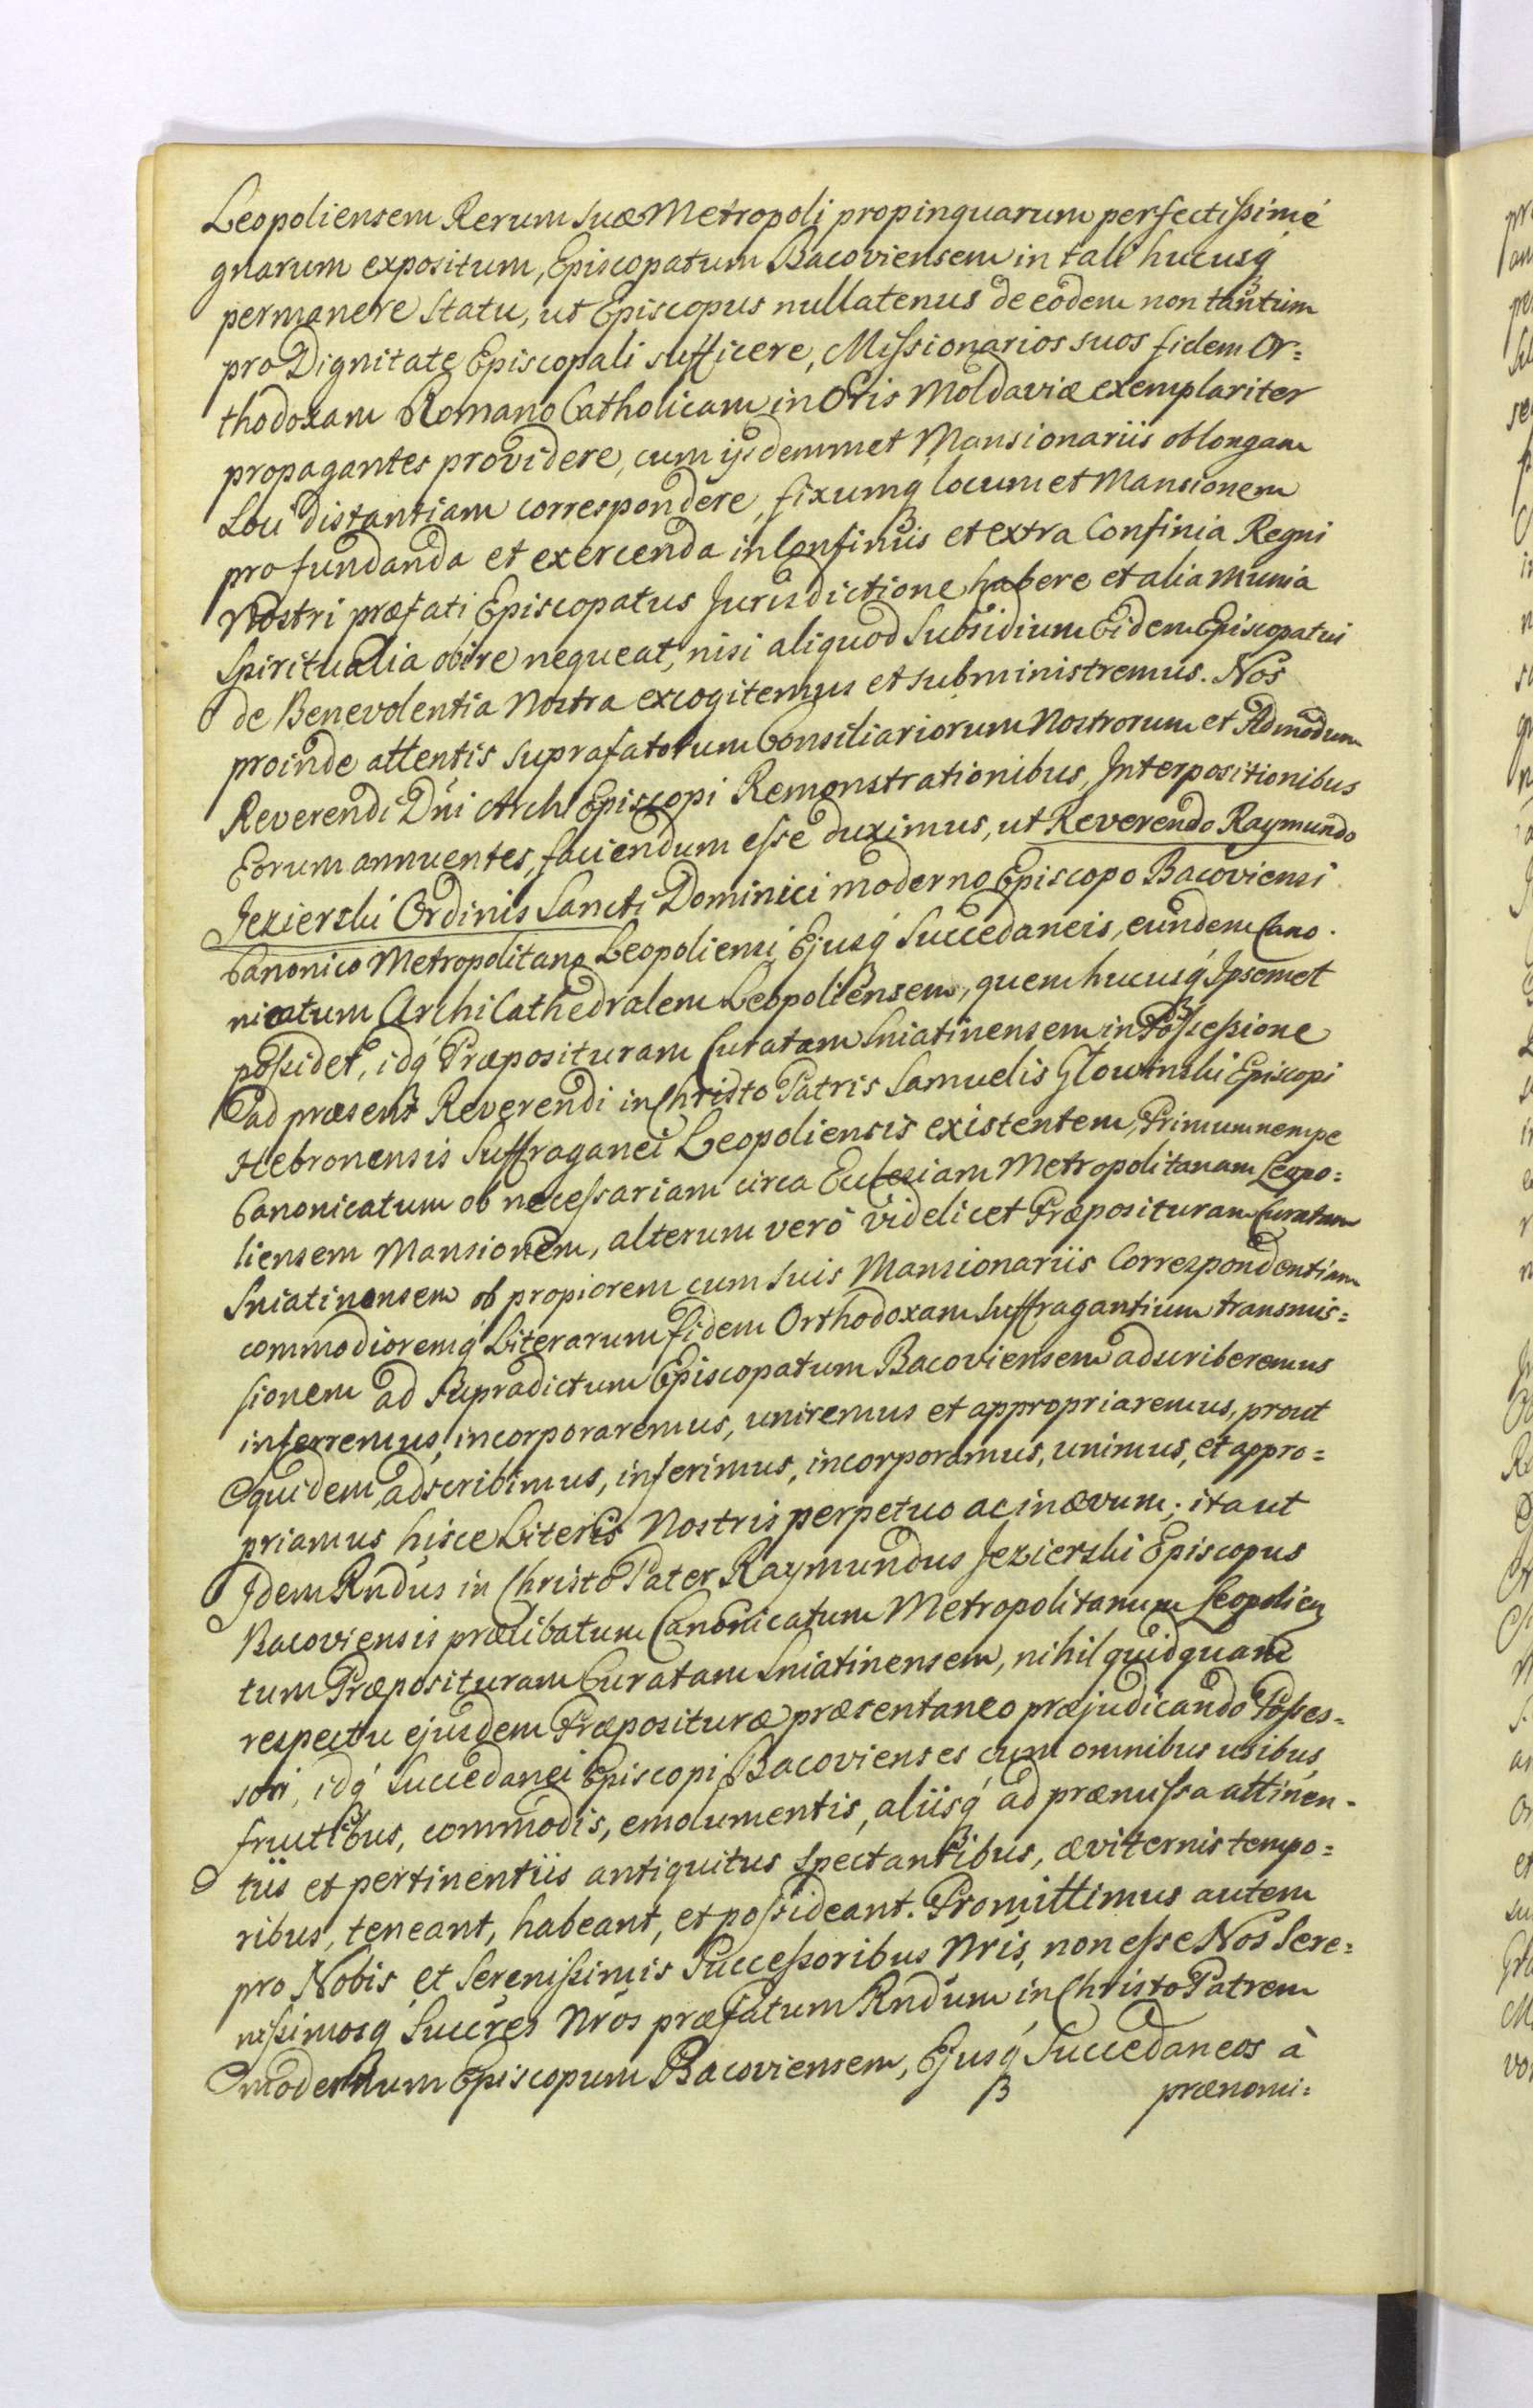 Leopoliensem Rerum suæ Metropoli propinquarum perfectissimé
gnarum expositum, Episcopatum Bacoviensem in tali hucusq́
permanere statu, ut Episcopus nullatenus de eodem non tantùm
pro Dignitate Episcopali sufficere, Missionarios suos fidem Or=
thodoxam Romano Catholicam in Oris Moldaviæ exemplariter
propagantes providere, cum ijsdemmet Mansionariis ob longam
Loci distantiam correspondere, fixumq́ locum et Mansionem
pro fundanda et exercenda in Confiniis et extra Confinia Regni
Nostri præfati Episcopatus Jurisdictione habere et alia munia
Spiritualia obire nequeat, nisi aliquod Subsidium Eidem Episcopatui
de Benevolentia Nostra excogitemus et subministremus. Nos
proinde attentis suprafatorum Consiliariorum Nostrorum et Admodum
Reverendi Dńi Archi Episcopi Remonstrationibus, Interpositionibus
Eorum annuentes, faciendum esse duximus, ut Reverendo Raymundo
Jezierski Ordinis Sancti Dominici moderno Episcopo Bacoviensi
Canonico Metropolitano Leopoliensi, Ejusq́ Succedaneis, eundem Cano-
nicatum Archi Cathedralem Leopoliensem, quem hucusq́ Ipsemet
possidet, idq́ Præposituram Curatam Sniatinensem in Possessione
ad præsens Reverendi in Christo Patris Samuelis Glowinski Episcopi
Hebronensis Suffraganei Leopoliensis existentem, Primum nempe
Canonicatum ob necessariam circa Ecclesiam Metropolitanam Leopo=
liensem Mansionem, alterum verò videlicet Præposituram Curatam
Sniatinensem ob propiorem cum suis Mansionariis Correspondentiam
commodioremq́ Literarum fidem Orthodoxam suffragantium transmis=
sionem ad supradictum Episcopatum Bacoviensem adscriberemus
inserremus, incorporaremus, uniremus et appropriaremus, prout
quidem adscribimus, inserimus, incorporamus, unimus, et appro=
priamus hisce Literis Nostris perpetuo ac in ævum; ita ut
Idem Rndus in Christo Pater Raymundus Jezierski Episcopus
Bacoviensis prælibatum Canonicatum Metropolitanum Leopolien
tum Præposituram Curatam Sniatinensem, nihil quidquam
respectu ejusdem Præpositurae præsentaneo præjudicando Posses=
sori, idq́ Succedanei Episcopi Bacovienses cum omnibus usibus,
fructibus, commodis, emolumentis, aliisq́ ad præmissa attinen-
tiis et pertinentiis antiquitus spectantibus, æviternis tempo=
ribus, teneant, habeant, et possideant. Promittimus autem
pro Nobis et Serenissimis Successoribus Nris, non esse Nos Sere=
nissimosq́ Succres Nros præfatum Rndum in Christo Patrem
modernum Episcopum Bacoviensem, Ejusq́ Succedaneos à
prænomi=